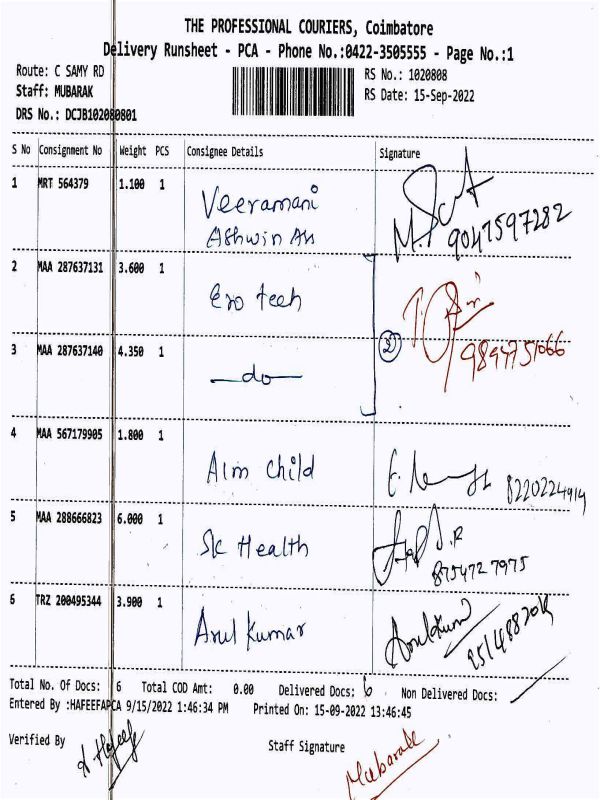 THE PROFESSIONAL COURIERS, Coimbatore
Delivery Runsheet - PCA - Phone No.:0422-3505555 - Page No.:1
Route: C SAMY RD RS No.: 1020808
Staff: MUBARAK RS Date: 15-Sep-2022
DRS No.: DCJB102080801
S No Consignment No Weight PCS Consignee Details Signature
1 MRT 564379 1.100 1 Veeramani
Ashwin 9047597282
2 MAA 287637131 3.600 1 Ezo teeh
3 MAA 287637140 4.350 1 —do— 2 9894751066
4 MAA 567179905 1.800 1 Aim child 8220224914
5 MAA 288666823 6.000 1 SK Health 8754727975
6 TRZ 200495344 3.900 1 Arul Kumar Arulkumar
Total No. Of Docs: 6 Total COD Amt: 0.00 Delivered Docs: 6 Non Delivered Docs:
Entered By :HAFEEFAPCA 9/15/2022 1:46:34 PM Printed On: 15-09-2022 13:46:45
Verified By A. Hafeefa Staff Signature Mubarak